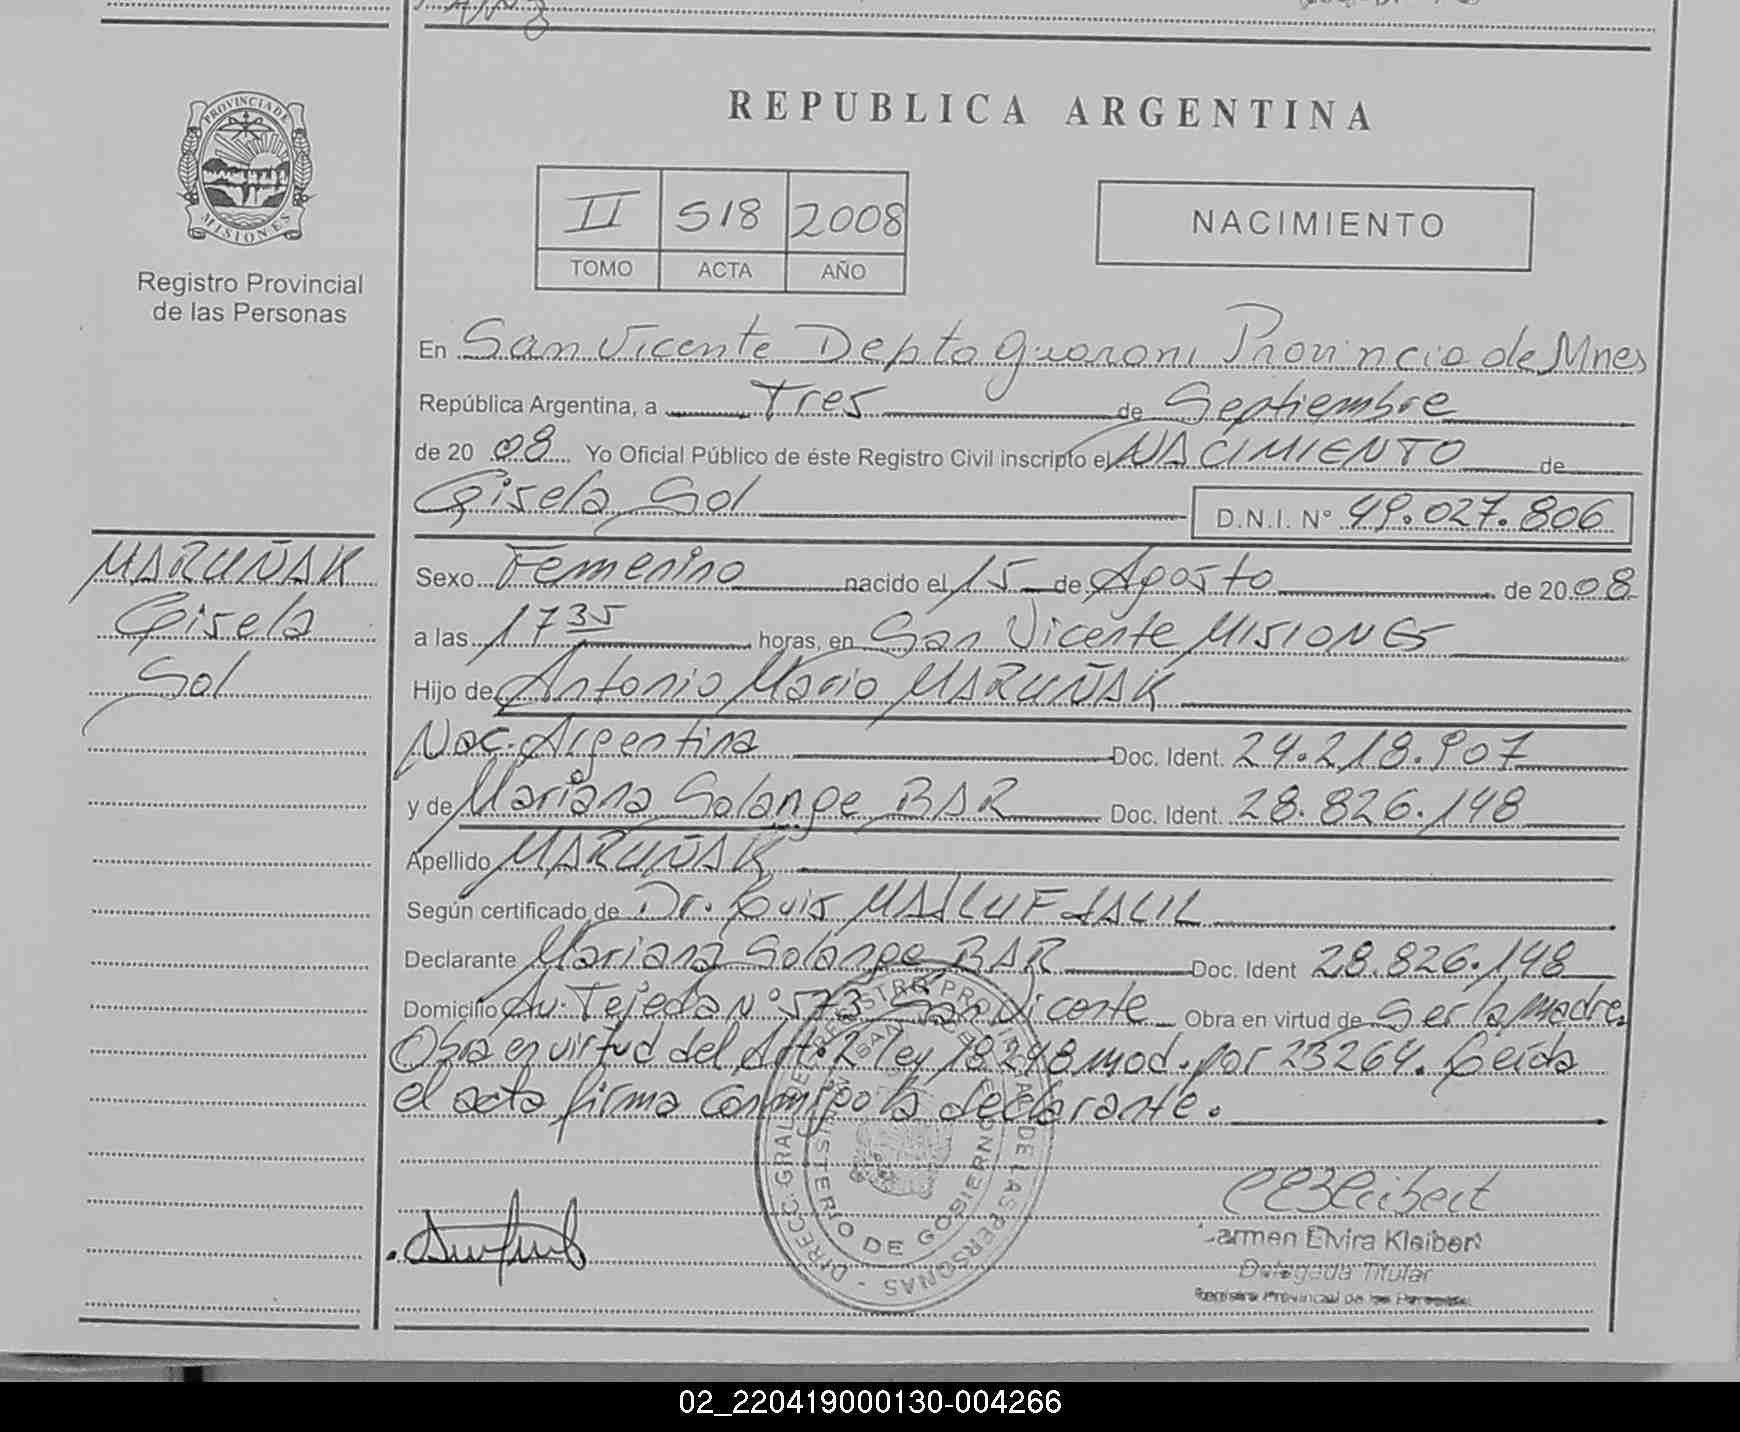 REPUBLICA ARGENTINA
PROVINCIA DE
MISIONES
Registro Provincial
de las Personas
II 518 2008
TOMO ACTA AÑO
NACIMIENTO
En San Vicente Depto Guarani Provincia de Mnes
República Argentina, a Tres de Septiembre
de 20 08 Yo Oficial Público de éste Registro Civil inscripto el NACIMIENTO de
Gisela Sol D.N.I. N° 49.027.806
MARUÑAK
Gisela
Sol
Sexo Femenino nacido el 15 de Agosto de 20 08
a las 17 35 horas, en San Vicente MISIONES
Hijo de Antonio Mario MARUÑAK
Nac. Argentina Doc. Ident. 24.218.907
y de Mariana Solange BAR Doc. Ident. 28.826.148
Apellido MARUÑAK
Según certificado de Dr. Luis MASLUF JALIL
Declarante Mariana Solange BAR Doc. Ident 28.826.148
Domicilio Av. Tejeda N° 573 San Vicente Obra en virtud de Ser la madre.
Obra en virtud del Art. 2 ley 18248 mod. por 23264. Leída
el acta firma conmigo la declarante.
DIRECC. GRAL. DE REGISTRO PROVINCIAL DE LAS PERSONAS
MINISTERIO DE GOBIERNO
Carmen Elvira Kleibert
Delegada Titular
Registro Provincial de las Personas
02_220419000130-004266